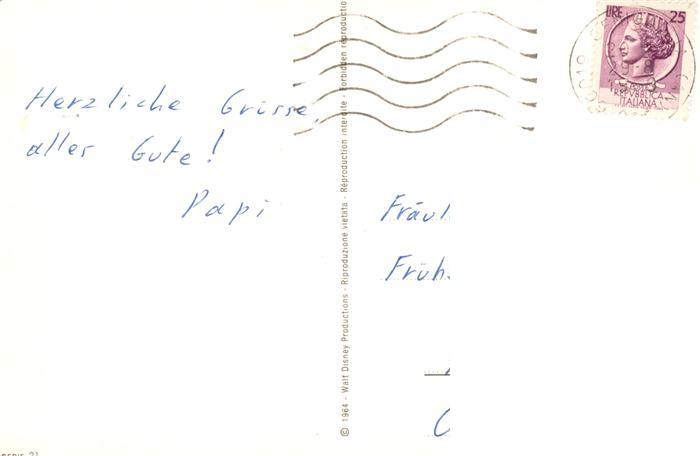 Herzliche Grüsse,
aller Gute!
Papi
© 1964 - Walt Disney Productions - Riproduzione vietata - Réproduction interdite - Forbidden reproduction
Fräul
Früh.
LIRE 25
REPVBBLICA
ITALIANA